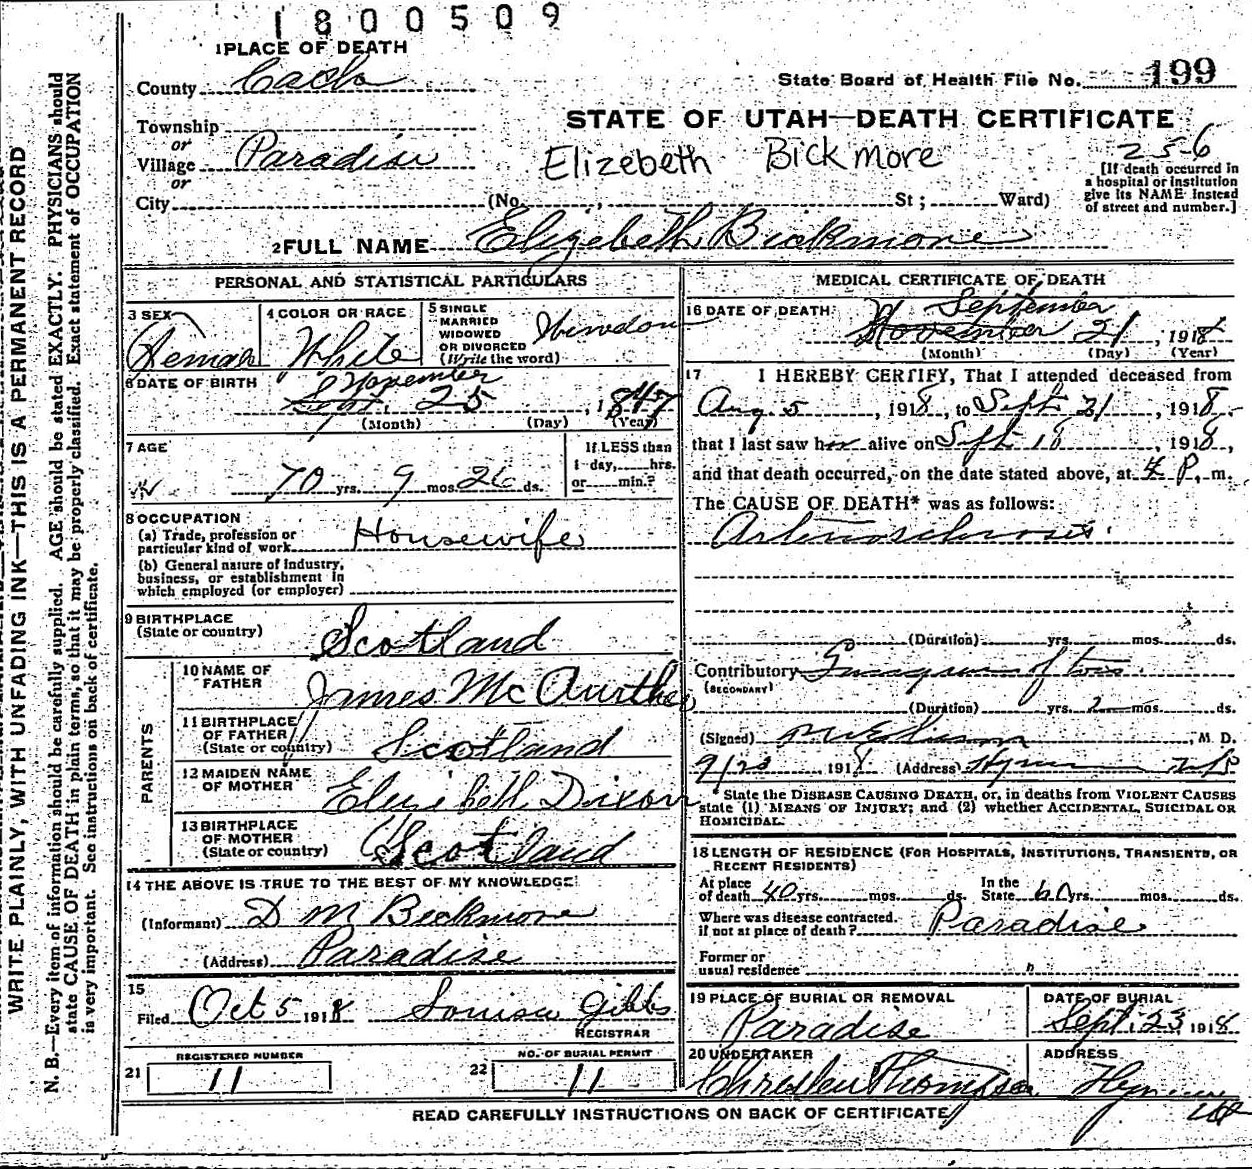 1800509
1 PLACE OF DEATH
County Cache
State Board of Health File No. 199
STATE OF UTAH—DEATH CERTIFICATE
Township
or
Village Paradise
or
City
Elizebeth Bickmore
256
[If death occurred in
a hospital or institution
give its NAME instead
of street and number.]
(No. St; Ward)
2 FULL NAME Elizebeth Bickmore
PERSONAL AND STATISTICAL PARTICULARS
3 SEX Femal
4 COLOR OR RACE White
5 SINGLE
MARRIED
WIDOWED
OR DIVORCED
(Write the word)
6 DATE OF BIRTH
November
Sept. 25, 1847
(Month) (Day) (Year)
7 AGE
70 yrs. 9 mos. 26 ds.
If LESS than
1 day, hrs.
or min.?
8 OCCUPATION
(a) Trade, profession or
particular kind of work Housewife
(b) General nature of industry,
business, or establishment in
which employed (or employer)
9 BIRTHPLACE
(State or country) Scotland
PARENTS
10 NAME OF
FATHER James McAurther
11 BIRTHPLACE
OF FATHER
(State or country) Scotland
12 MAIDEN NAME
OF MOTHER Elizibeth Dixon
13 BIRTHPLACE
OF MOTHER
(State or country) Scotland
14 THE ABOVE IS TRUE TO THE BEST OF MY KNOWLEDGE
(Informant) D M Bickmore
(Address) Paradise
15
Filed Oct 5 1918 Louisa Gibbs
REGISTRAR
21 REGISTERED NUMBER
11
22 NO. OF BURIAL PERMIT
11
MEDICAL CERTIFICATE OF DEATH
16 DATE OF DEATH
September
November 21, 1918
(Month) (Day) (Year)
17 I HEREBY CERTIFY, That I attended deceased from
Aug. 5, 1918, to Sept. 21, 1918,
that I last saw her alive on Sept. 18, 1918,
and that death occurred, on the date stated above, at 4 P. m.
The CAUSE OF DEATH* was as follows:
Arteriosclerosis.
(Duration) yrs. mos. ds.
Contributory of toes
(SECONDARY)
(Duration) yrs. 2 mos. ds.
(Signed) M. D.
9/23 1918 (Address) Hyrum
State the DISEASE CAUSING DEATH, or, in deaths from VIOLENT CAUSES
state (1) MEANS OF INJURY; and (2) whether ACCIDENTAL, SUICIDAL OR
HOMICIDAL.
18 LENGTH OF RESIDENCE (FOR HOSPITALS, INSTITUTIONS, TRANSIENTS, OR
RECENT RESIDENTS)
At place
of death 40 yrs. mos. ds.
In the
State 60 yrs. mos. ds.
Where was disease contracted.
if not at place of death? Paradise
Former or
usual residence
19 PLACE OF BURIAL OR REMOVAL
Paradise
DATE OF BURIAL
Sept. 23 1918
20 UNDERTAKER
Thompson
ADDRESS
Hyrum
Ut
READ CAREFULLY INSTRUCTIONS ON BACK OF CERTIFICATE
WRITE PLAINLY, WITH UNFADING INK—THIS IS A PERMANENT RECORD
N. B.—Every item of information should be carefully supplied. AGE should be stated EXACTLY. PHYSICIANS should
state CAUSE OF DEATH in plain terms, so that it may be properly classified. Exact statement of OCCUPATION
is very important. See instructions on back of certificate.